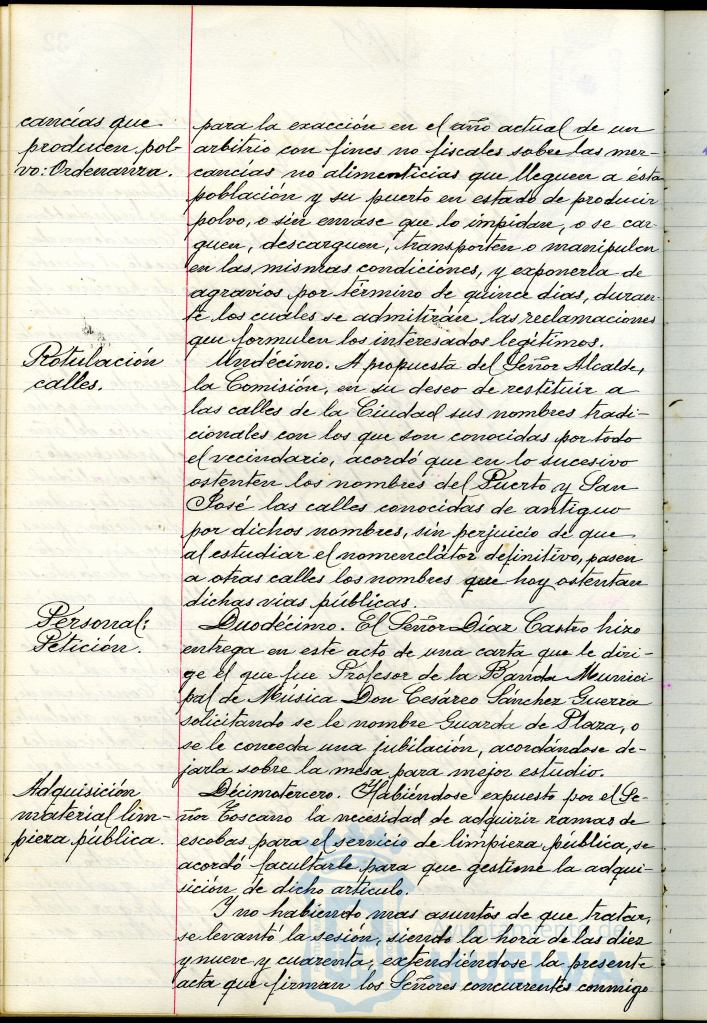 cancías que
producen pol-
vo: Ordenanza.
para la exacción en el año actual de un
arbitrio con fines no fiscales sobre las mer-
cancías no alimenticias que lleguen a esta
población y su puerto en estado de producir
polvo, o sin envase que lo impidan, o se car
guen, descarguen, transporten o manipulen
en las mismas condiciones, y exponerla de
agravios por término de quince días, duran-
te los cuales se admitirán las reclamaciones
que formulen los interesados legítimos.
Rotulación
calles.
Undécimo. A propuesta del Señor Alcalde,
la Comisión, en su deseo de restituir a
las calles de la Ciudad sus nombres tradi-
cionales con los que son conocidas por todo
el vecindario, acordó que en lo sucesivo
ostenten los nombres del Puerto y San
José las calles conocidas de antiguo
por dichos nombres, sin perjuicio de que
al estudiar el nomenclátor definitivo, pasen
a otras calles los nombres que hoy ostentan
dichas vías públicas.
Personal:
Petición.
Duodécimo. El Señor Díaz Castro hizo
entrega en este acto de una carta que le diri-
ge el que fue Profesor de la Banda Munici
pal de Música Don Cesáreo Sánchez Guerra
solicitando se le nombre Guarda de Plaza, o
se le conceda una jubilación, acordándose de-
jarla sobre la mesa para mejor estudio.
Adquisición
material lim-
pieza pública.
Décimotercero. Habiéndose expuesto por el Se-
ñor Toscano la necesidad de adquirir ramas de
escobas para el servicio de limpieza pública, se
acordó facultarle para que gestione la adqui-
sición de dicho artículo.
Y no habiendo mas asuntos de que tratar,
se levantó la sesión, siendo la hora de las diez
y nueve y cuarenta, extendiéndose la presente
acta que firman los Señores concurrentes conmigo
Ayuntamiento de
HUELVA